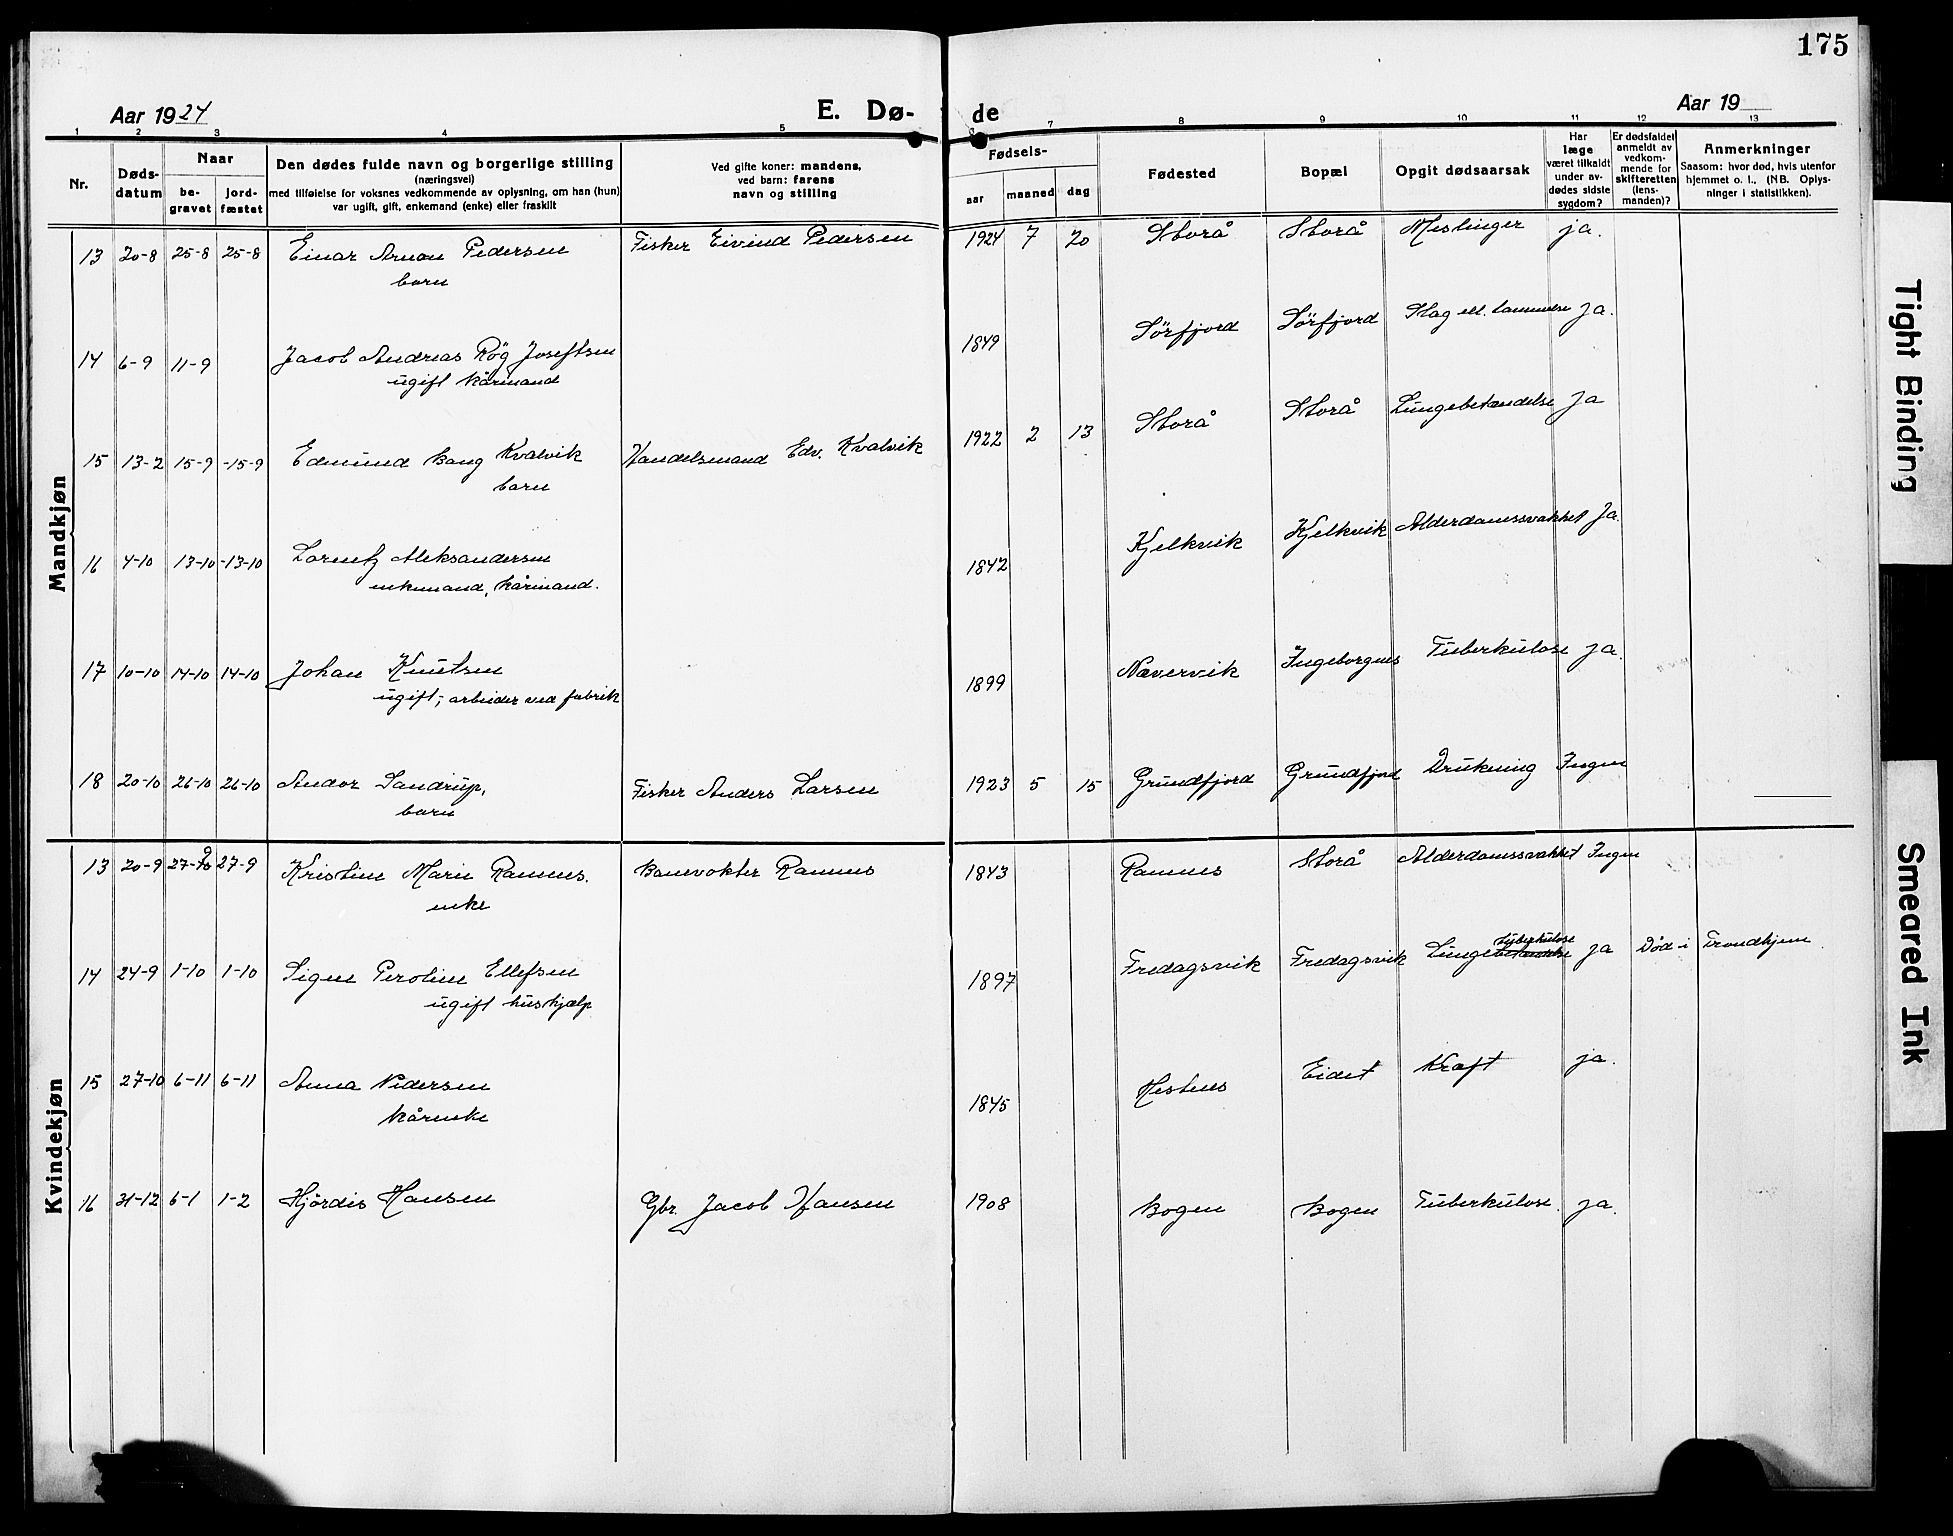 175
Aar 1924
E. Dø-
de
Aar 19
1 2 3 4 5 6 7 8 9 10 11 12 13
Nr.
Døds-
datum
Naar
be-
gravet
jord-
fæstet
Den dødes fulde navn og borgerlige stilling
(næringsvei)
med tilføielse for voksnes vedkommende av oplysning, om han (hun)
var ugift, gift, enkemand (enke) eller fraskilt
Ved gifte koner: mandens,
ved barn: farens
navn og stilling
Fødsels-
aar
maaned
dag
Fødested
Bopæl
Opgit dødsaarsak
Har
læge
været tilkaldt
under av-
dødes sidste
sygdom?
Er dødsfaldet
anmeldt av
vedkom-
mende for
skifteretten
(lens-
manden)?
Anmerkninger
Saasom: hvor død, hvis utenfor
hjemmet o. l., (NB. Oplys-
ninger i statistikken).
Mandkjøn
13 20-8 25-8 25-8 Einar Arnon Pedersen Fisker Eivind Pedersen 1924 7 20 Storå Storå Meslinger ja.
barn
14 6-9 11-9 Jacob Andreas Røg Joseftsen 1849 Sørfjord Sørfjord Slag ell. lammelse Ja.
ugift kårmand
15 13-2 15-9 -15-9 Edmund Bang Kvalvik Handelsmand Edv. Kvalvik 1922 2 13 Storå Storå Lungebetændelse Ja
barn
16 4-10 13-10 -13-10 Lorentz Aleksandersen 1842 Kjelkvik Kjelkvik Alderdomssvakhet Ja.
enkemand, kårmand.
17 10-10 14-10 14-10 Johan Knutsen 1899 Nævervik Ingeborgnes Tuberkulose ja.
ugift; arbeider ved fabrik
18 20-10 26-10 26-10 Andor Sandrup, Fisker Anders Larsen 1923 5 15 Grundfjord Grundfjord Drukning Ingen
barn
Kvindekjøn
13 20-9 27-9 27-9 Kristine Marie Ramnes. Banevokter Ramnes 1843 Ramnes Storå Alderdomssvakhet Ingen
enke
14 24-9 1-10 1-10 Signe Peroline Ellefsen 1897 Fredagsvik Fredagsvik Lungebetændelse tuberkulose ja Død i Trondhjem
ugift hushjælp
15 27-10 6-11 6-11 Anna Pedersen 1845 Hestnes Eidet Kræft ja.
kårenke
16 31-12 6-1 1-2 Hjørdis Hansen Gbr. Jacob Hansen 1908 Bogen Bogen Tuberkulose. ja.
Tight Binding
Smeared Ink